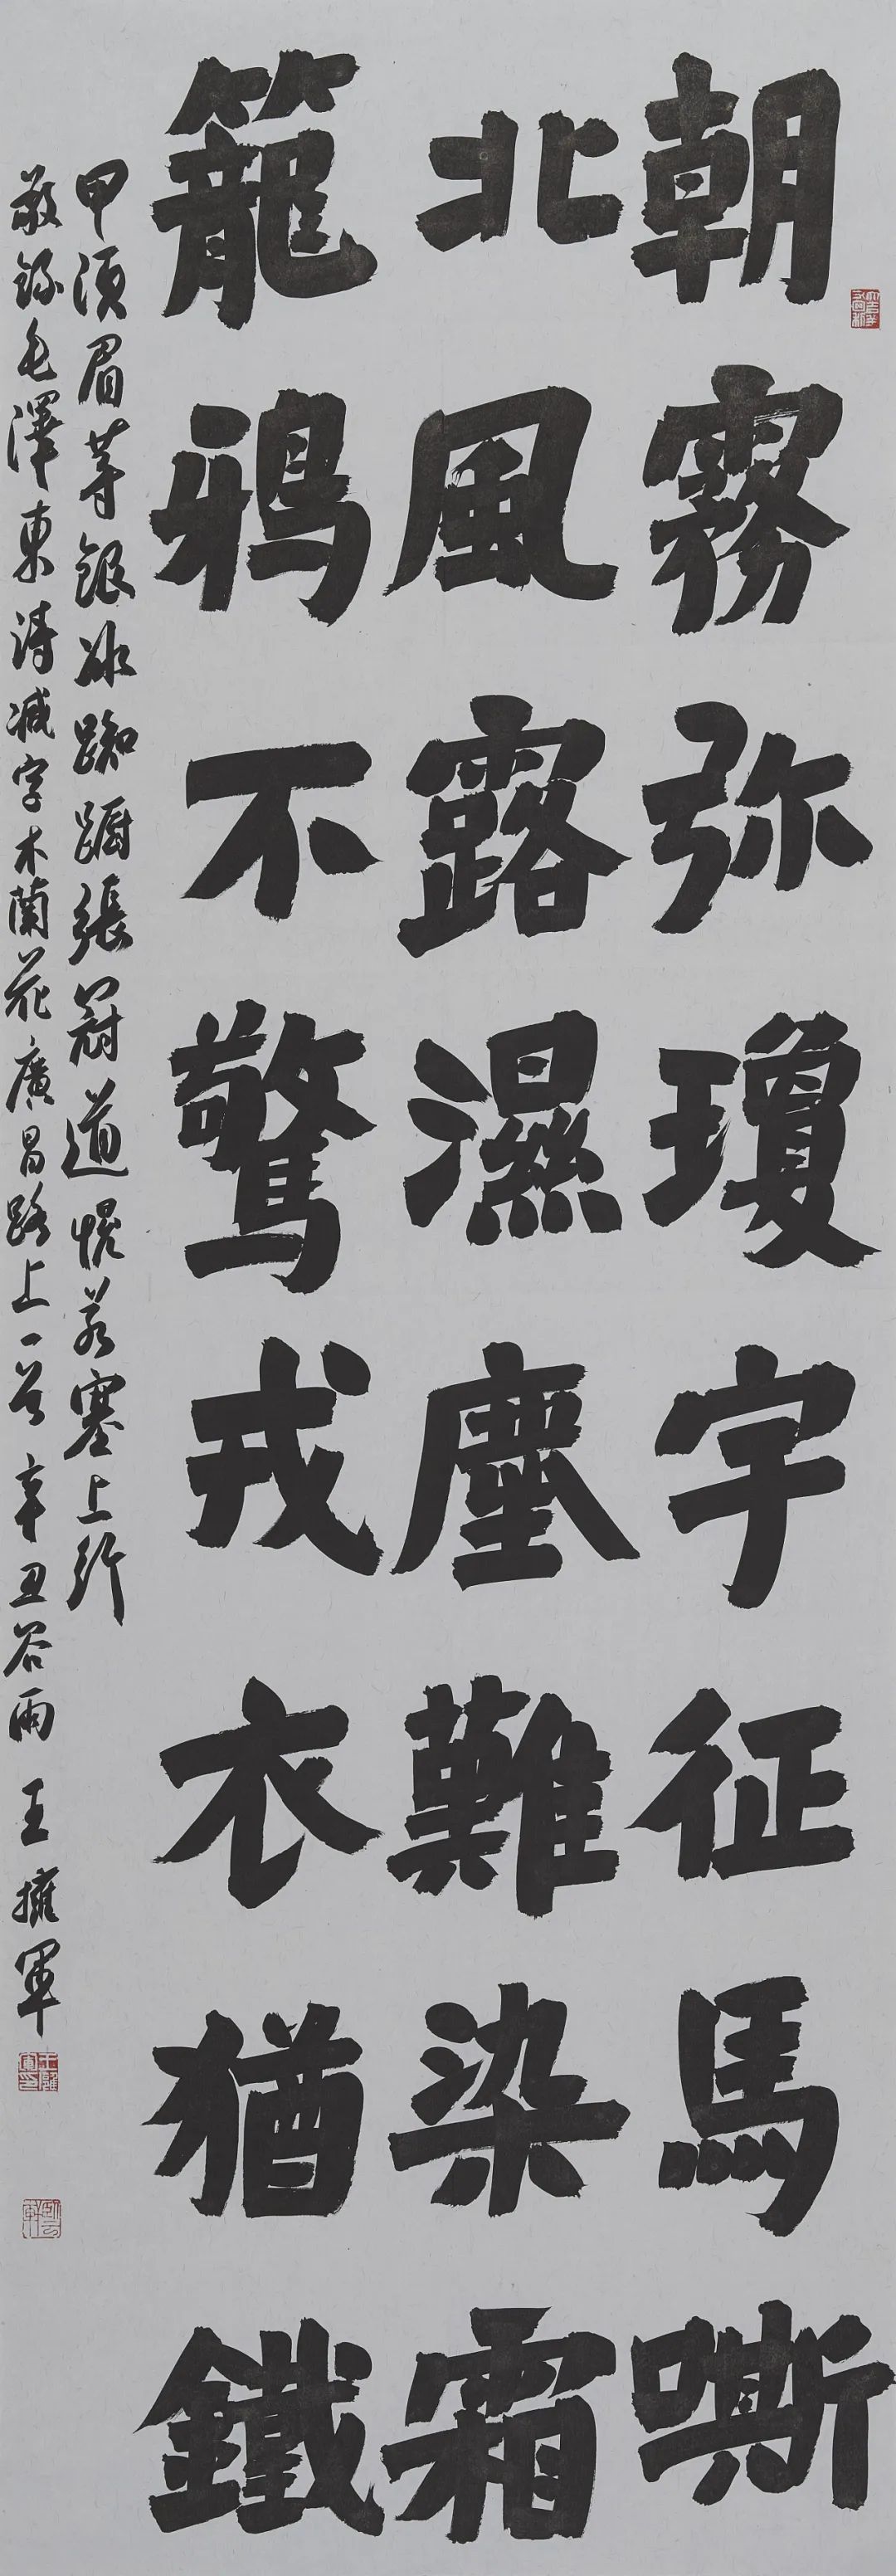 朝霧弥瓊宇征馬嘶
北風露濕塵難染霜
籠鴉不驚戎衣猶鐵
甲須眉等銀冰踟躕張冠道恍若塞上行
敬錄毛澤東詩減字木蘭花廣昌路上一首辛丑谷雨 王擁軍